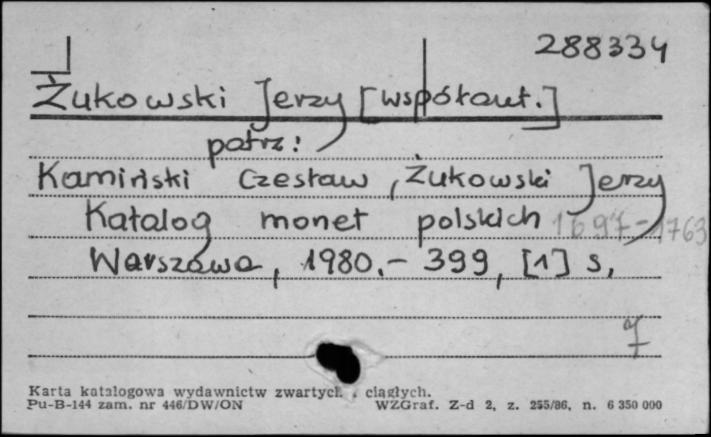 288334
Żukowski Jerzy [współaut.]
patrz:
Kamiński Czesław, Żukowski Jerzy
Katalog monet polskich 1697-1763
Warszawa, 1980.- 399, [1] s.
Karta katalogowa wydawnictw zwartych ciągłych.
Pu-B-144 zam. nr 446/DW/ON WZGraf. Z-d 2, z. 255/86, n. 6 350 000